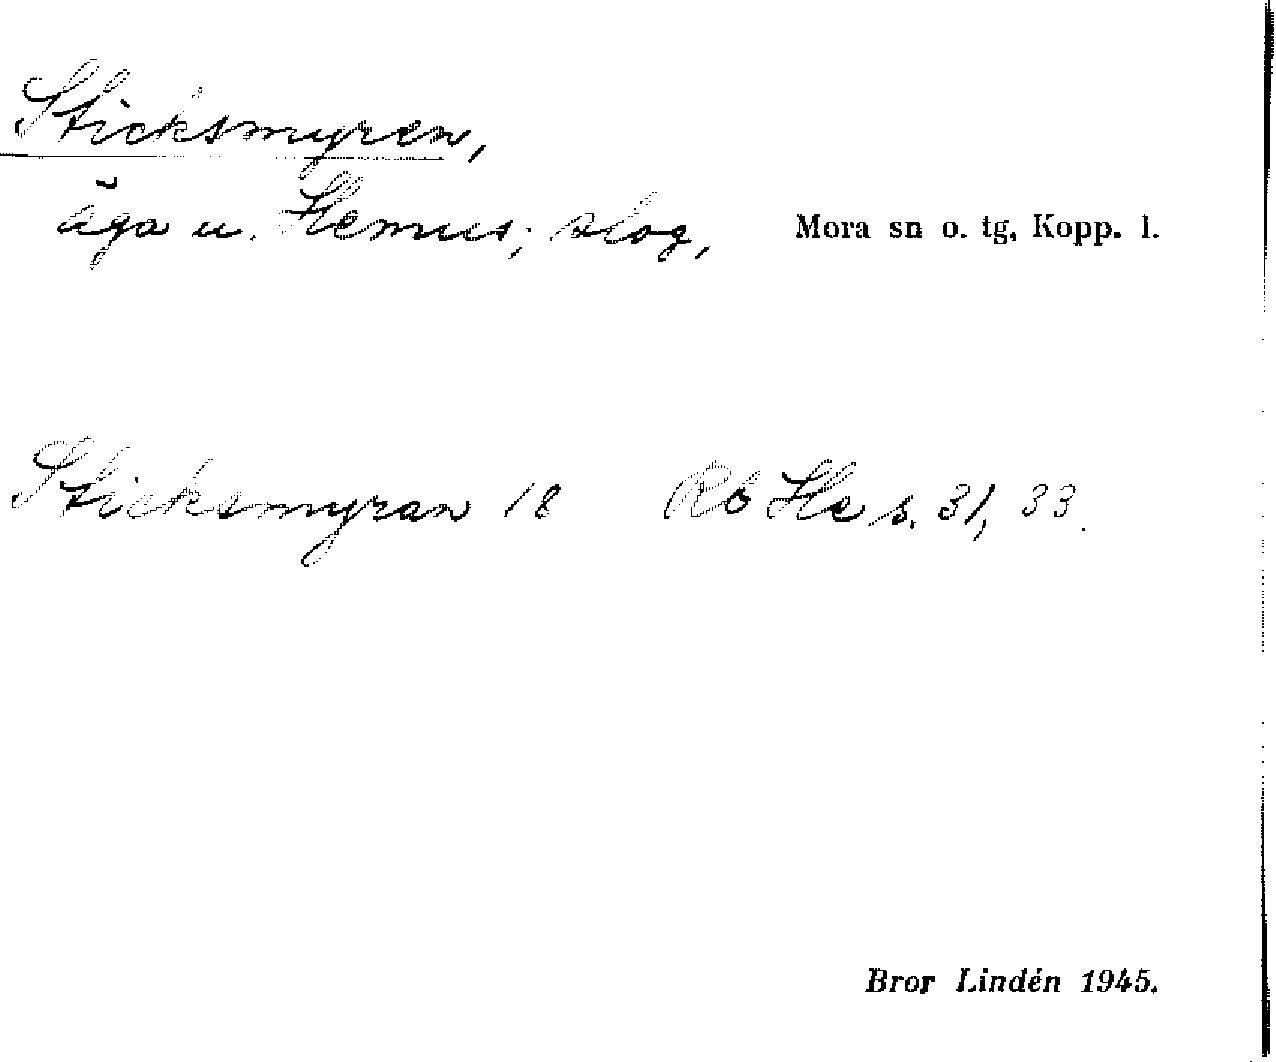 Sticksmyren,
äga u. Hemus; slog, Mora sn o. tg, Kopp. l.
Sticksmyran 18 Rb He s. 31, 33.
Bror Lindén 1945.